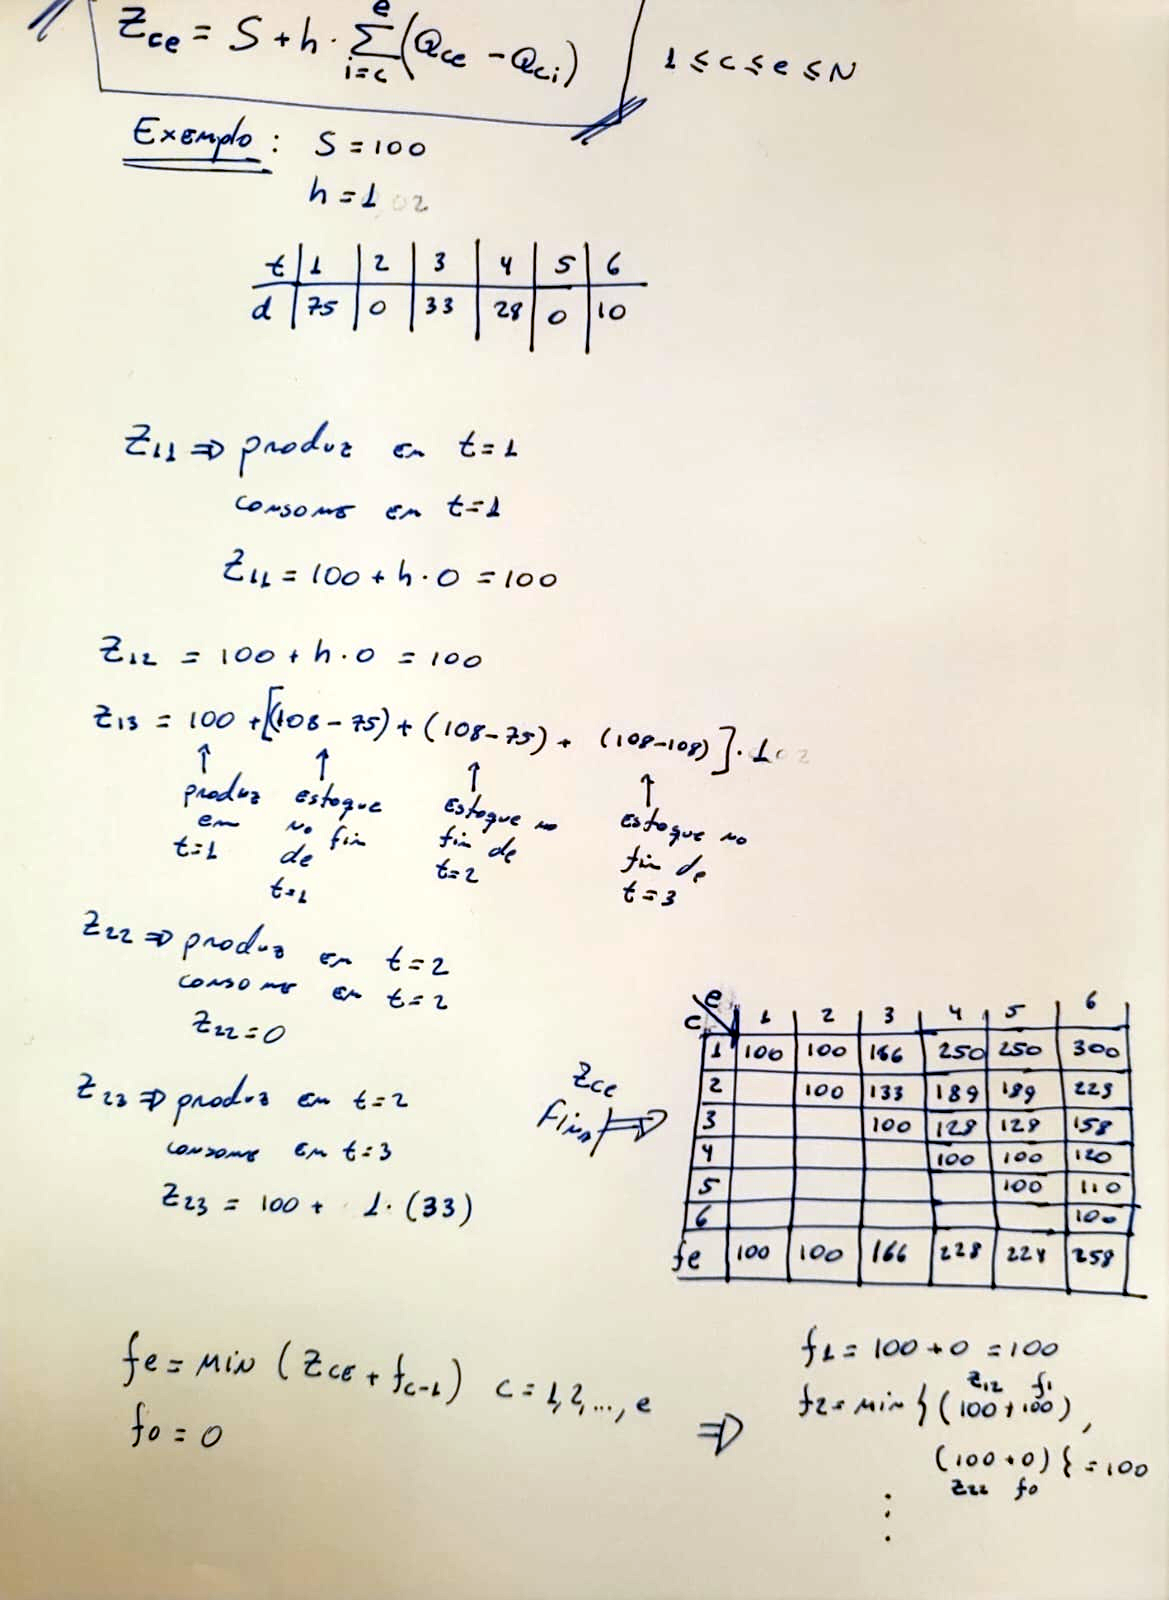 Zce = S + h · Σ(i=c → e) (Qce - Qci)   1 ≤ c ≤ e ≤ N
Exemplo : S = 100
h = 1
t | 1 | 2 | 3 | 4 | 5 | 6
d | 75 | 0 | 33 | 28 | 0 | 10
Z11 ⇒ produz em t=1
consome em t=1
Z11 = 100 + h · 0 = 100
Z12 = 100 + h · 0 = 100
Z13 = 100 + [(108 - 75) + (108-75) + (108-108)] · 1
↑ produz em t=1
↑ estoque no fim de t=1
↑ Estoque no fim de t=2
↑ Estoque no fim de t=3
Z22 ⇒ produz em t=2
consome em t=2
Z22 = 0
Z23 ⇒ produz em t=2
consome em t=3
Z23 = 100 + 1 · (33)
Zce Final ⇒
c \ e | 1 | 2 | 3 | 4 | 5 | 6
1 | 100 | 100 | 166 | 250 | 250 | 300
2 | 100 | 133 | 189 | 189 | 229
3 | 100 | 128 | 128 | 158
4 | 100 | 100 | 120
5 | 100 | 110
6 | 100
fe | 100 | 100 | 166 | 228 | 228 | 258
fe = MIN (Zce + fc-1) c = 1, 2, ..., e
f0 = 0
⇒
f1 = 100 + 0 = 100
Z12 f1
f2 = MIN { (100 + 100) ,
(100 + 0) } = 100
Z22 f0